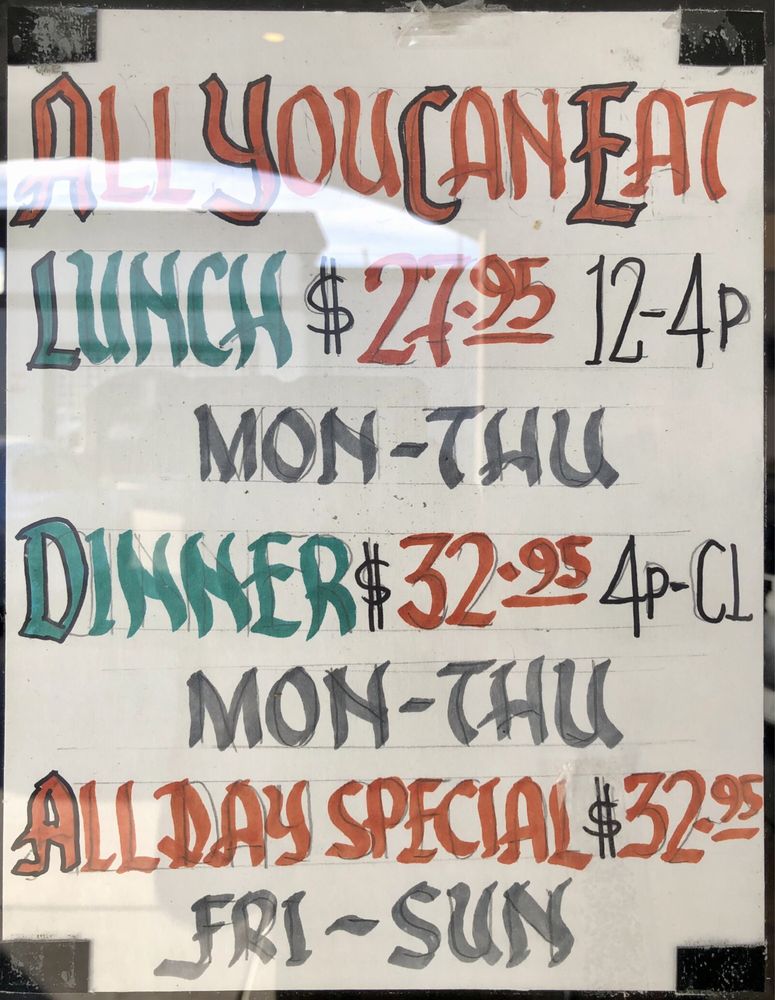 ALL YOU CAN EAT
LUNCH $27.95 12-4P
MON-THU
DINNER $32.95 4P-CL
MON-THU
ALL DAY SPECIAL $32.95
FRI-SUN